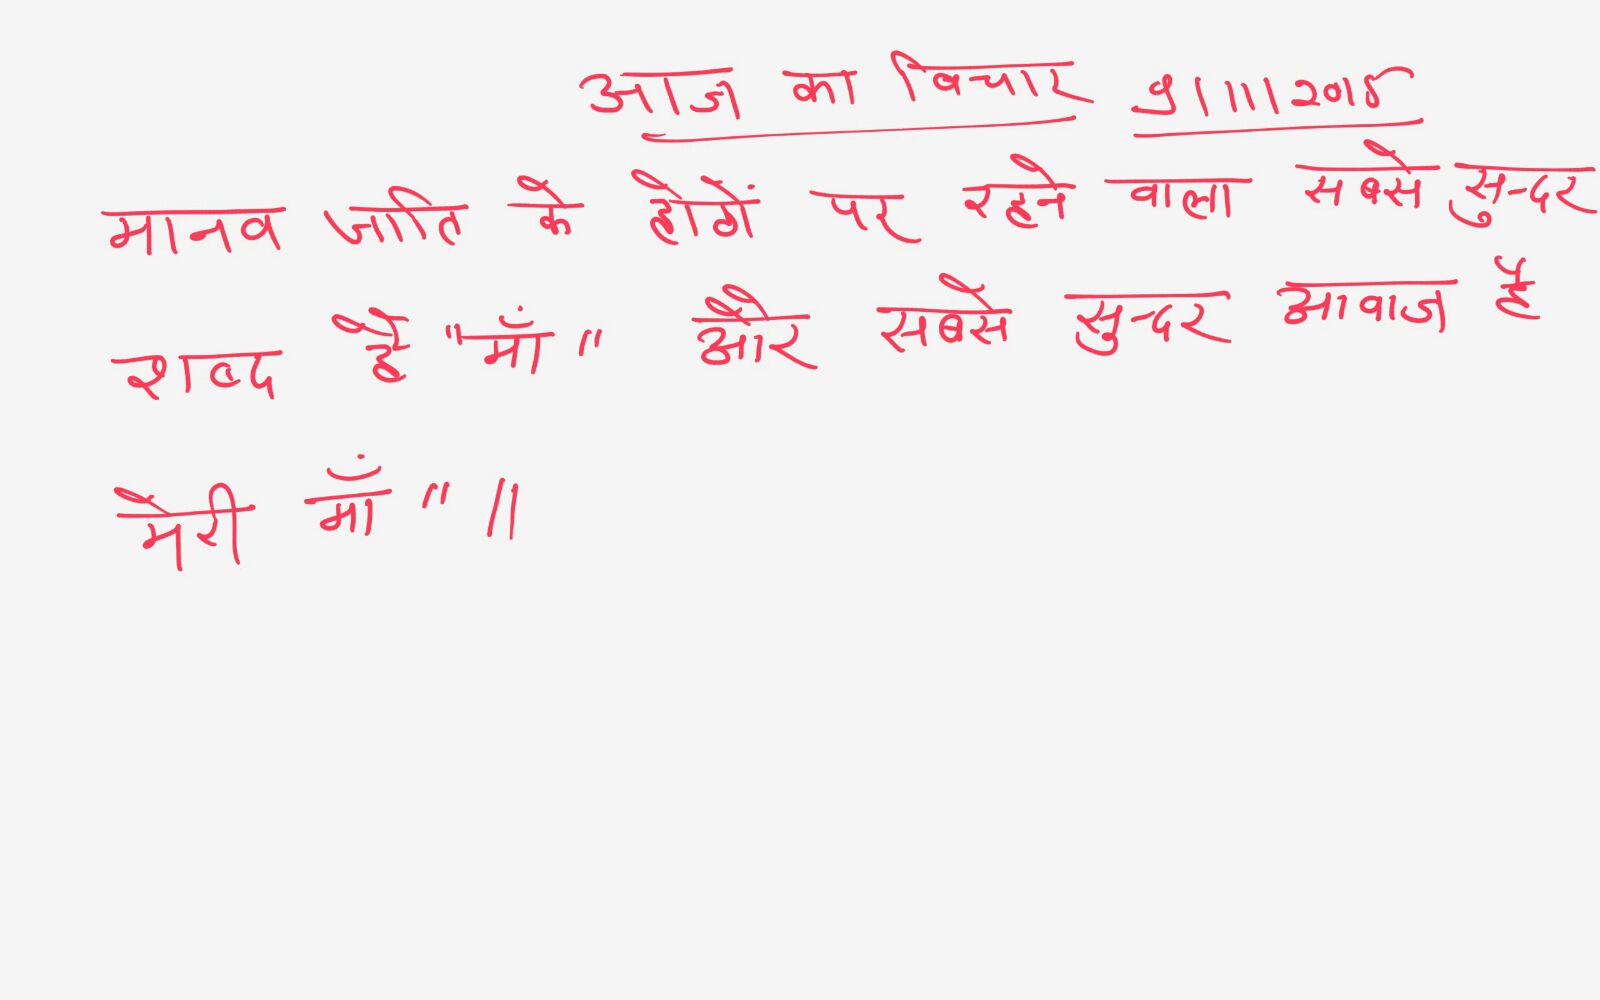 आज का विचार 9/11/2018
मानव जाति के होठों पर रहने वाला सबसे सुन्दर
शब्द है "माँ" और सबसे सुन्दर आवाज है
मेरी माँ" ||